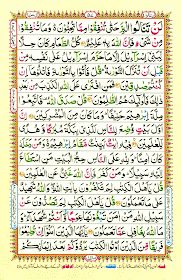 لَنْ تَنَالُوا الْبِرَّ حَتّٰى تُنْفِقُوْا مِمَّا تُحِبُّوْنَ وَمَا تُنْفِقُوْا
مِنْ شَيْءٍ فَاِنَّ اللّٰهَ بِهٖ عَلِيْمٌ كُلُّ الطَّعَامِ كَانَ حِلًّا
لِّبَنِيْ اِسْرَآءِيْلَ اِلَّا مَا حَرَّمَ اِسْرَآءِيْلُ عَلٰى نَفْسِهٖ مِنْ
قَبْلِ اَنْ تُنَزَّلَ التَّوْرٰىةُ قُلْ فَاْتُوْا بِالتَّوْرٰىةِ فَاتْلُوْهَا اِنْ
كُنْتُمْ صٰدِقِيْنَ فَمَنِ افْتَرٰى عَلَى اللّٰهِ الْكَذِبَ مِنْ بَعْدِ
ذٰلِكَ فَاُولٰٓئِكَ هُمُ الظّٰلِمُوْنَ قُلْ صَدَقَ اللّٰهُ فَاتَّبِعُوْا
مِلَّةَ اِبْرٰهِيْمَ حَنِيْفًا وَمَا كَانَ مِنَ الْمُشْرِكِيْنَ اِنَّ اَوَّلَ
بَيْتٍ وُّضِعَ لِلنَّاسِ لَلَّذِيْ بِبَكَّةَ مُبٰرَكًا وَّهُدًى
لِّلْعٰلَمِيْنَ فِيْهِ اٰيٰتٌ بَيِّنٰتٌ مَّقَامُ اِبْرٰهِيْمَ وَمَنْ دَخَلَهٗ كَانَ
اٰمِنًا وَلِلّٰهِ عَلَى النَّاسِ حِجُّ الْبَيْتِ مَنِ اسْتَطَاعَ اِلَيْهِ
سَبِيْلًا وَمَنْ كَفَرَ فَاِنَّ اللّٰهَ غَنِيٌّ عَنِ الْعٰلَمِيْنَ قُلْ
يٰٓاَهْلَ الْكِتٰبِ لِمَ تَكْفُرُوْنَ بِاٰيٰتِ اللّٰهِ وَاللّٰهُ شَهِيْدٌ
عَلٰى مَا تَعْمَلُوْنَ قُلْ يٰٓاَهْلَ الْكِتٰبِ لِمَ تَصُدُّوْنَ عَنْ
سَبِيْلِ اللّٰهِ مَنْ اٰمَنَ تَبْغُوْنَهَا عِوَجًا وَّاَنْتُمْ شُهَدَآءُ وَمَا
اللّٰهُ بِغَافِلٍ عَمَّا تَعْمَلُوْنَ يٰٓاَيُّهَا الَّذِيْنَ اٰمَنُوْٓا اِنْ تُطِيْعُوْا
فَرِيْقًا مِّنَ الَّذِيْنَ اُوْتُوا الْكِتٰبَ يَرُدُّوْكُمْ بَعْدَ اِيْمَانِكُمْ